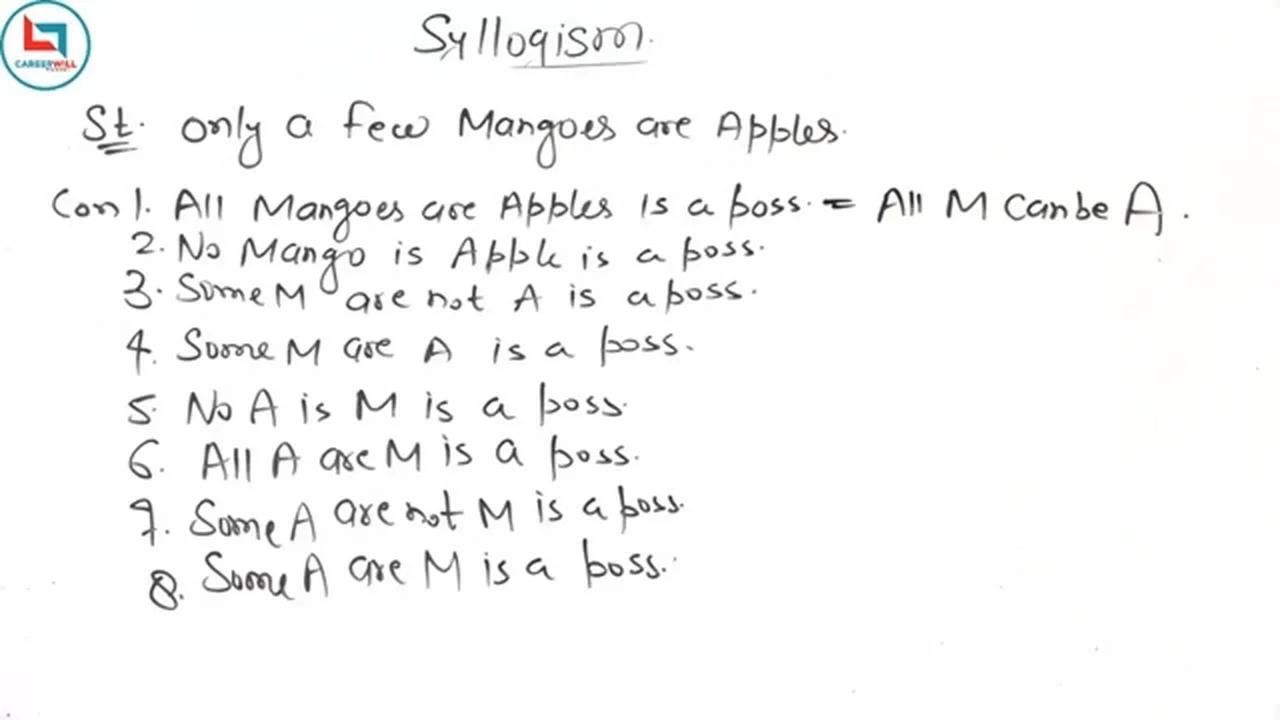 CAREERWILL
Syllogism.
St. only a few Mangoes are Apples.
Con 1. All Mangoes are Apples is a poss. = All M can be A.
2. No Mango is Apple is a poss.
3. Some M are not A is a poss.
4. Some M are A is a poss.
5. No A is M is a poss.
6. All A are M is a poss.
7. Some A are not M is a poss.
8. Some A are M is a poss.